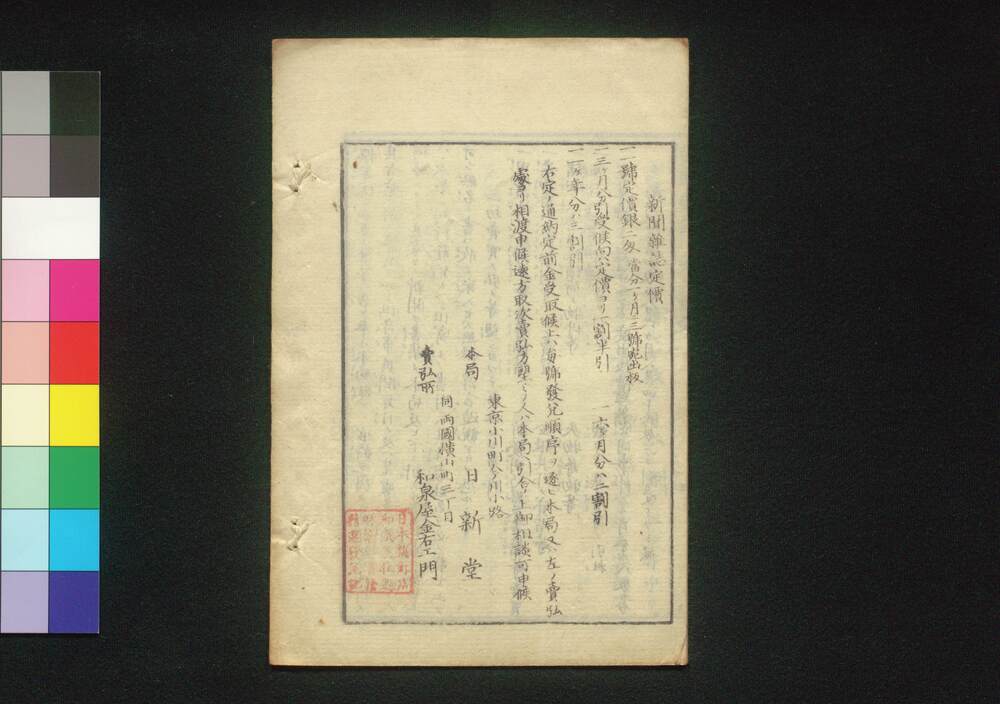 新聞雜誌定價
一一號定價銀二匁 當分一ヶ月三號宛出板
一三ヶ月分引受候向ハ定價ヨリ一割半引 一六ヶ月分ハ二割引
一一ヶ年分ハ三割引
右定ノ通約定前金受取候上ハ每號發兌順序ヲ逐ヒ本局又ハ左ノ賣弘
處ヨリ相渡申候遠方取次賣弘方望ミノ人ハ本局ヘ引合ノ上御相談可申候
東京小川町今川小路
本局 日新堂
同両國橫山町三丁目
賣弘所 和泉屋金右エ門